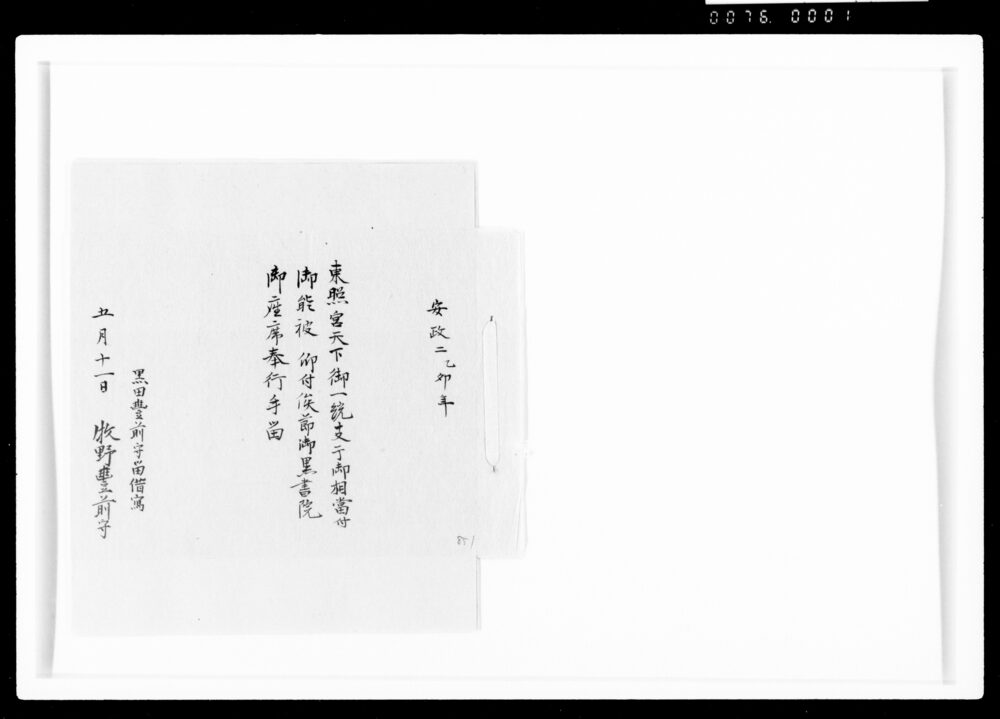 0076.0001
安政二乙卯年
東照宮天下御一統支干御相當付
御能被 仰付候節御黒書院
御座席奉行手留
黒田豊前守留借寫
五月十一日 牧野豊前守
851